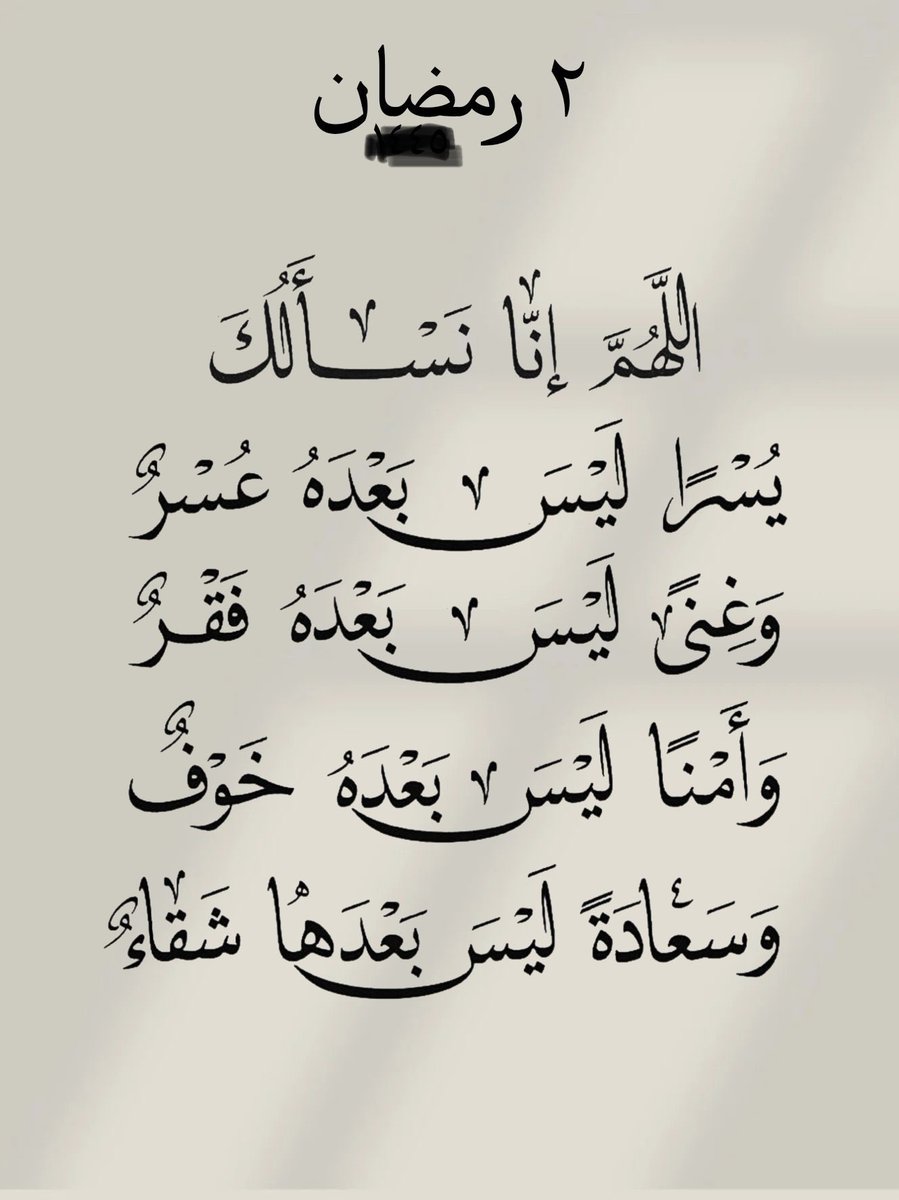 ٢ رمضان
١٤٤٥
اللَّهُمَّ إِنَّا نَسْأَلُكَ
يُسْرًا لَيْسَ بَعْدَهُ عُسْرٌ
وَغِنىً لَيْسَ بَعْدَهُ فَقْرٌ
وَأَمْنًا لَيْسَ بَعْدَهُ خَوْفٌ
وَسَعَادَةً لَيْسَ بَعْدَهَا شَقَاءٌ